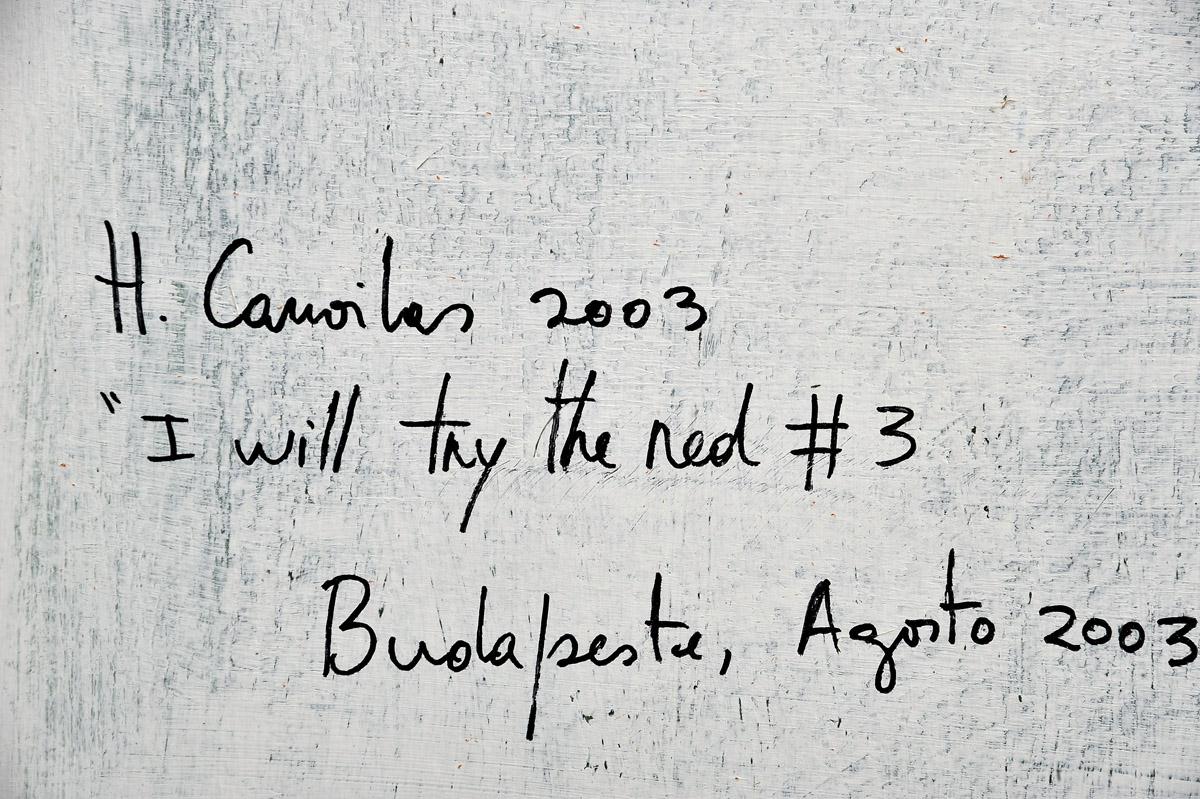 H. Canoilas 2003
"I will try the red #3
Budapeste, Agosto 2003